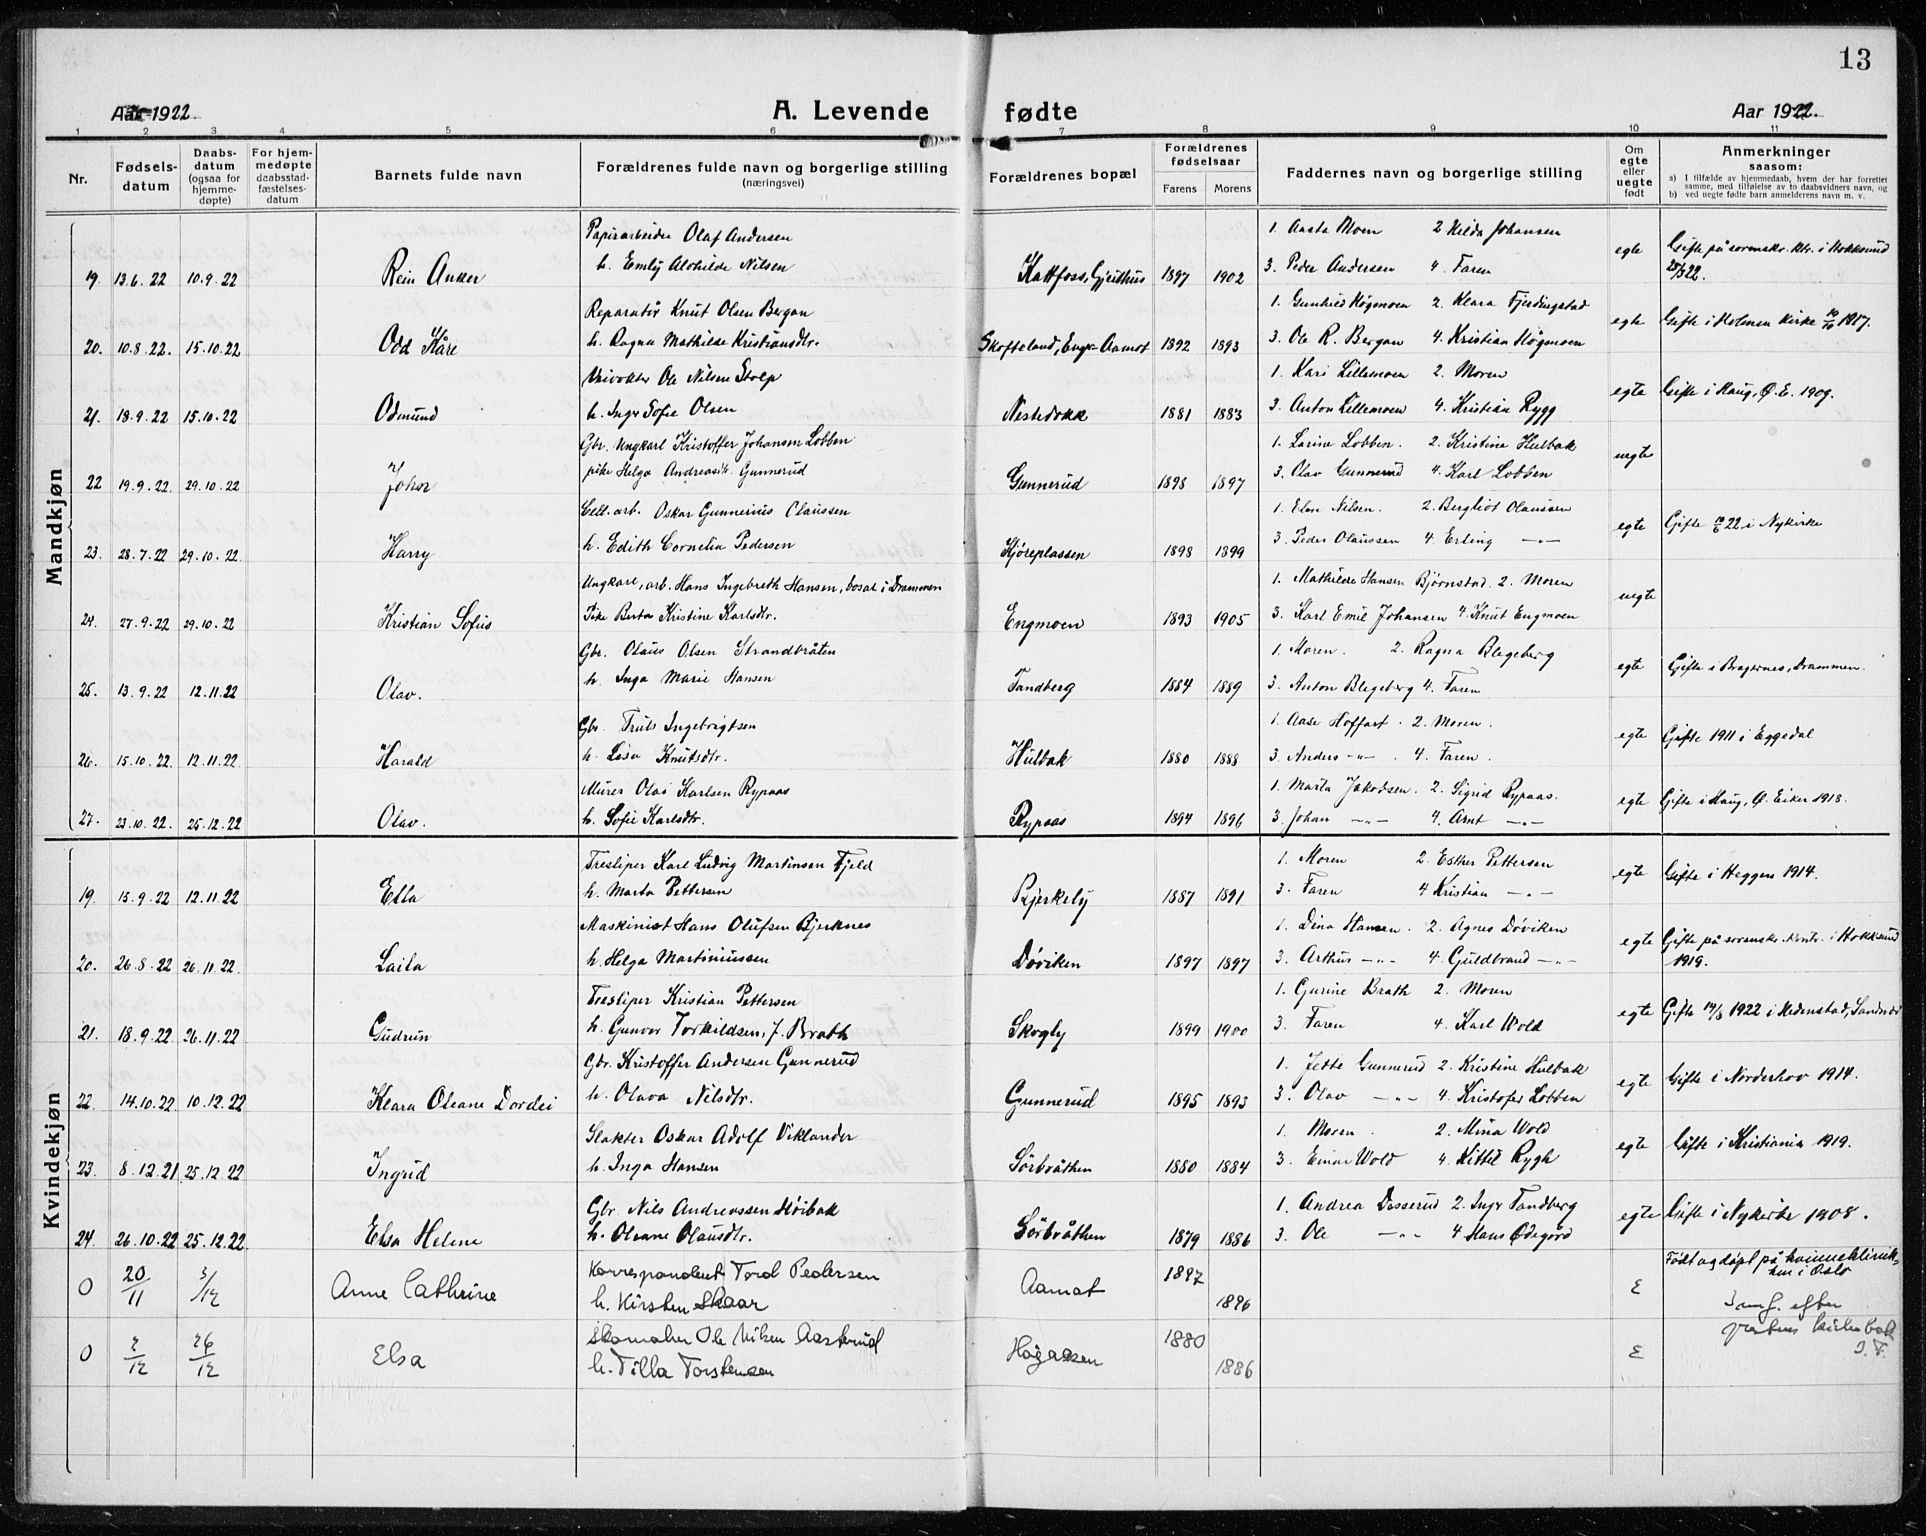 13
Aar 1922. A. Levende fødte Aar 1922.
1 2 3 4 5 6 7 8 9 10 11
Nr. Fødsels-datum Daabs-datum (ogsaa for hjemme-døpte) For hjem-medøpte daabsstad-fæstelses-datum Barnets fulde navn Forældrenes fulde navn og borgerlige stilling (næringsvei) Forældrenes bopæl Forældrenes fødselsaar Farens Morens Faddernes navn og borgerlige stilling Om egte eller uegte født Anmerkninger saasom:
a) I tilfælde av hjemmedaab, hvem der har forrettet samme, med tilføielse av to daabsvidners navn, og
b) ved uegte fødte barn anmelderens navn m. v.
Mandkjøn
Papirarbeider Olaf Andersen 1. Aasta Moen 2 Hilda Johansen
19. 13.6.22 10.9.22 Rein Anker h. Emly Alvhilde Nilsen Kattfoss, Gjeithus 1897 1902 3. Peder Andersen 4. Faren egte Gifte på sorenskr. ktr. i Hokksund 25/3 22.
Reparatør Knut Olsen Bergan 1. Gunhild Høgmoen 2. Klara Fjerdingstad
20. 10.8.22. 15.10.22 Odd Kåre h. Ragna Mathilde Kristiansdtr. Skofteland, Enger Aamot 1892 1893 3. Ole R. Bergan 4. Kristian Høgmoen egte Gifte i Holmen Kirke 1917.
Veivokter Ole Nilsen Stolp 1. Kari Lillemoen 2. Moren
21. 18.9.22 15.10.22 Odmund h. Inga Sofie Olsen Nestedokk 1881 1883 3. Anton Lillemoen 4. Kristian Rygg egte Gifte i Haug, Ø. E. 1909.
Gbr. Ungkarl Kristoffer Johansen Lobben 1. Larine Lobben. 2. Kristine Hulbak
22 19.9.22. 29.10.22 Johan pike Helga Andreasdtr. Gunnerud Gunnerud 1898 1897 3. Olav Gunnerud 4. Karl Lobben uegte
Cell. arb. Oskar Gunnerius Olaussen 1. Elen Nilsen. 2. Bergliot Olaussen
23. 28.7.22 29.10.22 Harry h. Edith Cornelia Pedersen Kjøreplassen 1898 1899 3. Peder Olaussen 4. Erling -"- egte Gifte 22 i Nykirke
Ungkarl, arb. Hans Ingebreth Hansen, bosat i Drammen 1. Mathilde Hansen Bjørnstad 2. Moren
24. 27.9.22 29.10.22 Kristian Sofus Pike Berta Kristine Karlsdtr. Engmoen 1893 1905 3. Karl Emil Johansen 4. Knut Engmoen uegte
Gbr. Olaus Olsen Strandbråten 1. Moren. 2. Ragna Blegeberg
25. 13.9.22 12.11.22 Olav. h. Inga Marie Hansen Tandberg 1884 1889 3. Anton Blegeberg 4. Faren egte Gifte i Bragernes, Drammen.
Gbr. Truls Ingebrigtsen 1. Aase Hoffart. 2. Moren.
26. 15.10.22. 12.11.22 Harald h. Lisa Knutsdtr. Hulbak 1880 1888 3. Anders -"-. 4. Faren. egte Gifte 1911 i Eggedal
Murer Olai Karlsen Rypaas 1. Marta Jakobsen. 2. Sigrid Rypaas.
27. 23.10.22. 25.12.22 Olav. h. Sofie Karlsdtr. Rypaas 1894 1896 3. Johan -"- 4. Arnt -"- egte Gifte i Haug, Ø. Eiker 1918.
Kvindekjøn
Tresliper Karl Ludvig Martinsen Fjeld 1. Moren 2. Esther Pettersen
19. 15.9.22 12.11.22 Ella h. Marta Pettersen Bjerkely 1887 1891 3. Faren 4 Kristian -"- egte Gifte i Heggen 1914.
Maskinist Hans Olufsen Bjerknes 1. Dina Hansen. 2. Agnes Døviken
20. 26.8.22 26.11.22. Laila h. Helga Martiniussen Døviken 1897 1897 3. Arthur -"- 4. Guldbrand -"- egte Gifte på sorenskr. kontr. i Hokksund 1919.
Tresliper Kristian Pettersen 1. Gurine Brath 2. Moren
21. 18.9.22 26.11.22 Gudrun h. Gunvor Torkildsen, f. Brath Skogly 1899 1900 3. Faren 4. Karl Wold egte Gifte 1922 i Hedenstad, Sandsvær
Gbr. Kristoffer Andersen Gunnerud 1. Jette Gunnerud 2. Kristine Hulbak
22. 14.10.22 10.12.22 Klara Oleane Dordei h. Olava Nilsdtr. Gunnerud 1895 1893 3. Olav -"- 4. Kristofer Lobben egte Gifte i Norderhov 1914.
Slakter Oskar Adolf Viklander 1. Moren. 2. Mina Wold
23. 8.12.21 25.12.22 Ingrid h. Inga Hansen Sørbråthen 1880 1884 3. Einar Wold 4. Kittil Rygh egte Gifte i Kristiania 1919.
Gbr. Nils Andreassen Høibak 1. Andrea Dosserud 2. Inga Tandberg
24. 26.10.22 25.12.22 Elsa Helene h. Oleane Olausdtr. Sørbråthen 1879 1886 3. Ole -"- 4 Hans Ødegård egte Gifte i Nykirke 1908.
0 20/11 3/12 Anne Cathrine Korrespondent Tord Pedersen Aamot 1897 E Født og døpt på kvinneklinikken i Oslo
h. Kirsten Skaar 1896
0 2/12 26/12 Elsa Skomaker Ole Nilsen Aaserud Høgaasen 1880 E Innf. efter prestens kirkebok
h. Tilla Torstensen 1886